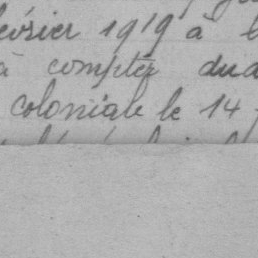 février 1919 à
à compter dud
coloniale le 14